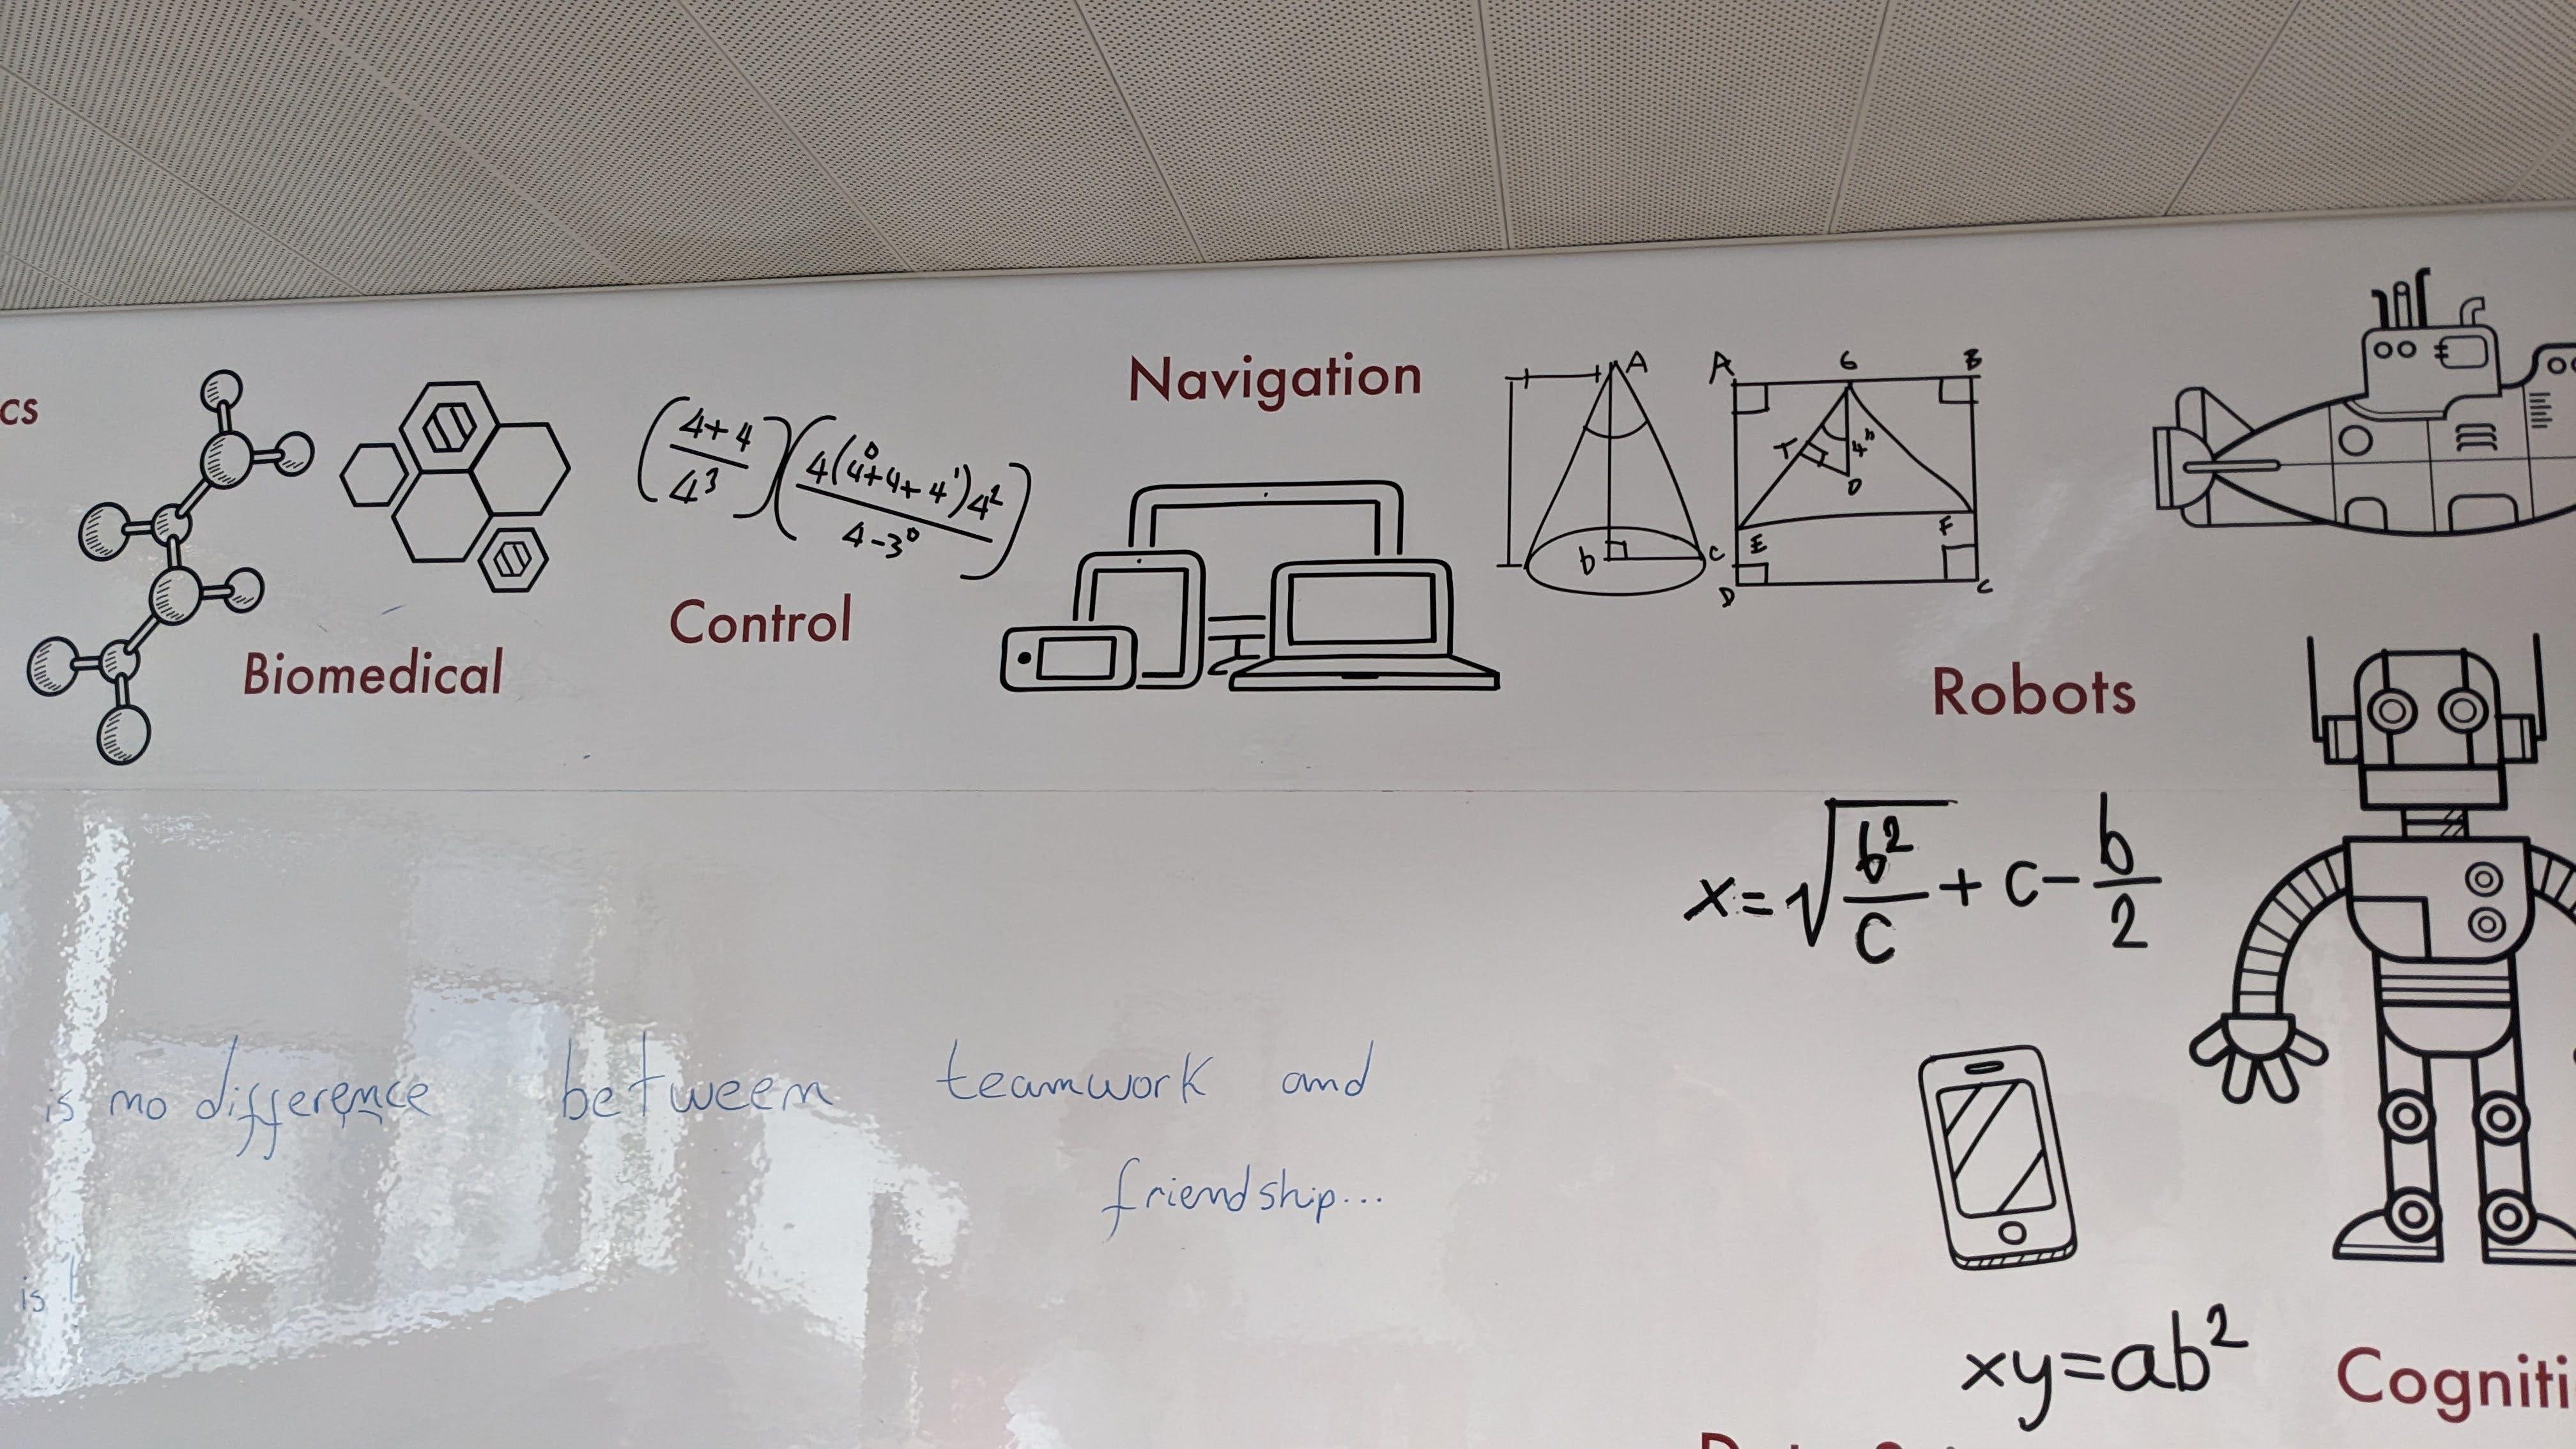 cs
Biomedical
(4+4/4³)(4(4⁰+4+4¹)4²/4-3⁰)
Control
Navigation
A
b
C
A G B
T 4"
D
E F
D C
Robots
x=√(b²/c)+c-b/2
is no difference between teamwork and
friendship...
is
xy=ab²
Cogniti